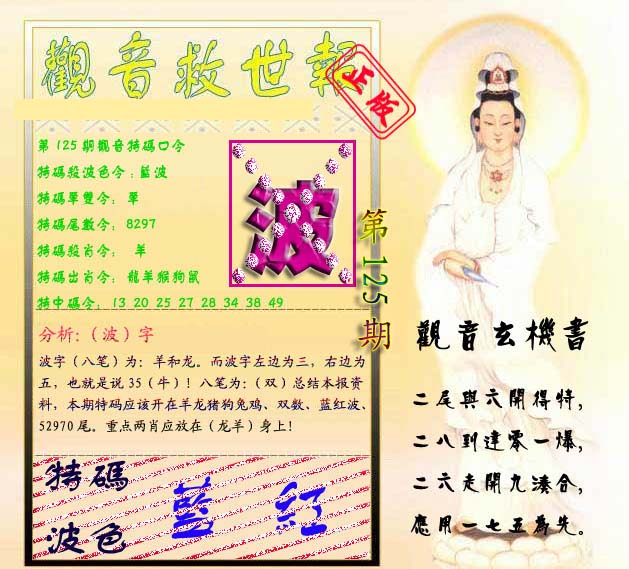 觀音救世報
正版
第125期觀音特碼口令
特碼殺波色令:藍波
特碼單雙令: 單
特碼尾數令: 8297
特碼殺肖令: 羊
特碼出肖令: 龍羊猴狗鼠
特中碼令: 13 20 25 27 28 34 38 49
波
第125期
分析:（波）字
波字（八笔）为: 羊和龙。而波字左边为三，右边为
五，也就是说 35（牛）！八笔为:（双）总结本报资
料，本期特码应该开在羊龙猪狗兔鸡、双数、蓝红波、
52970 尾。重点两肖应放在（龙羊）身上！
特碼
波色
藍 紅
觀音玄機書
二尾與六開得特，
二八到達零一爆，
二六走開九湊合，
應用一七五為先。